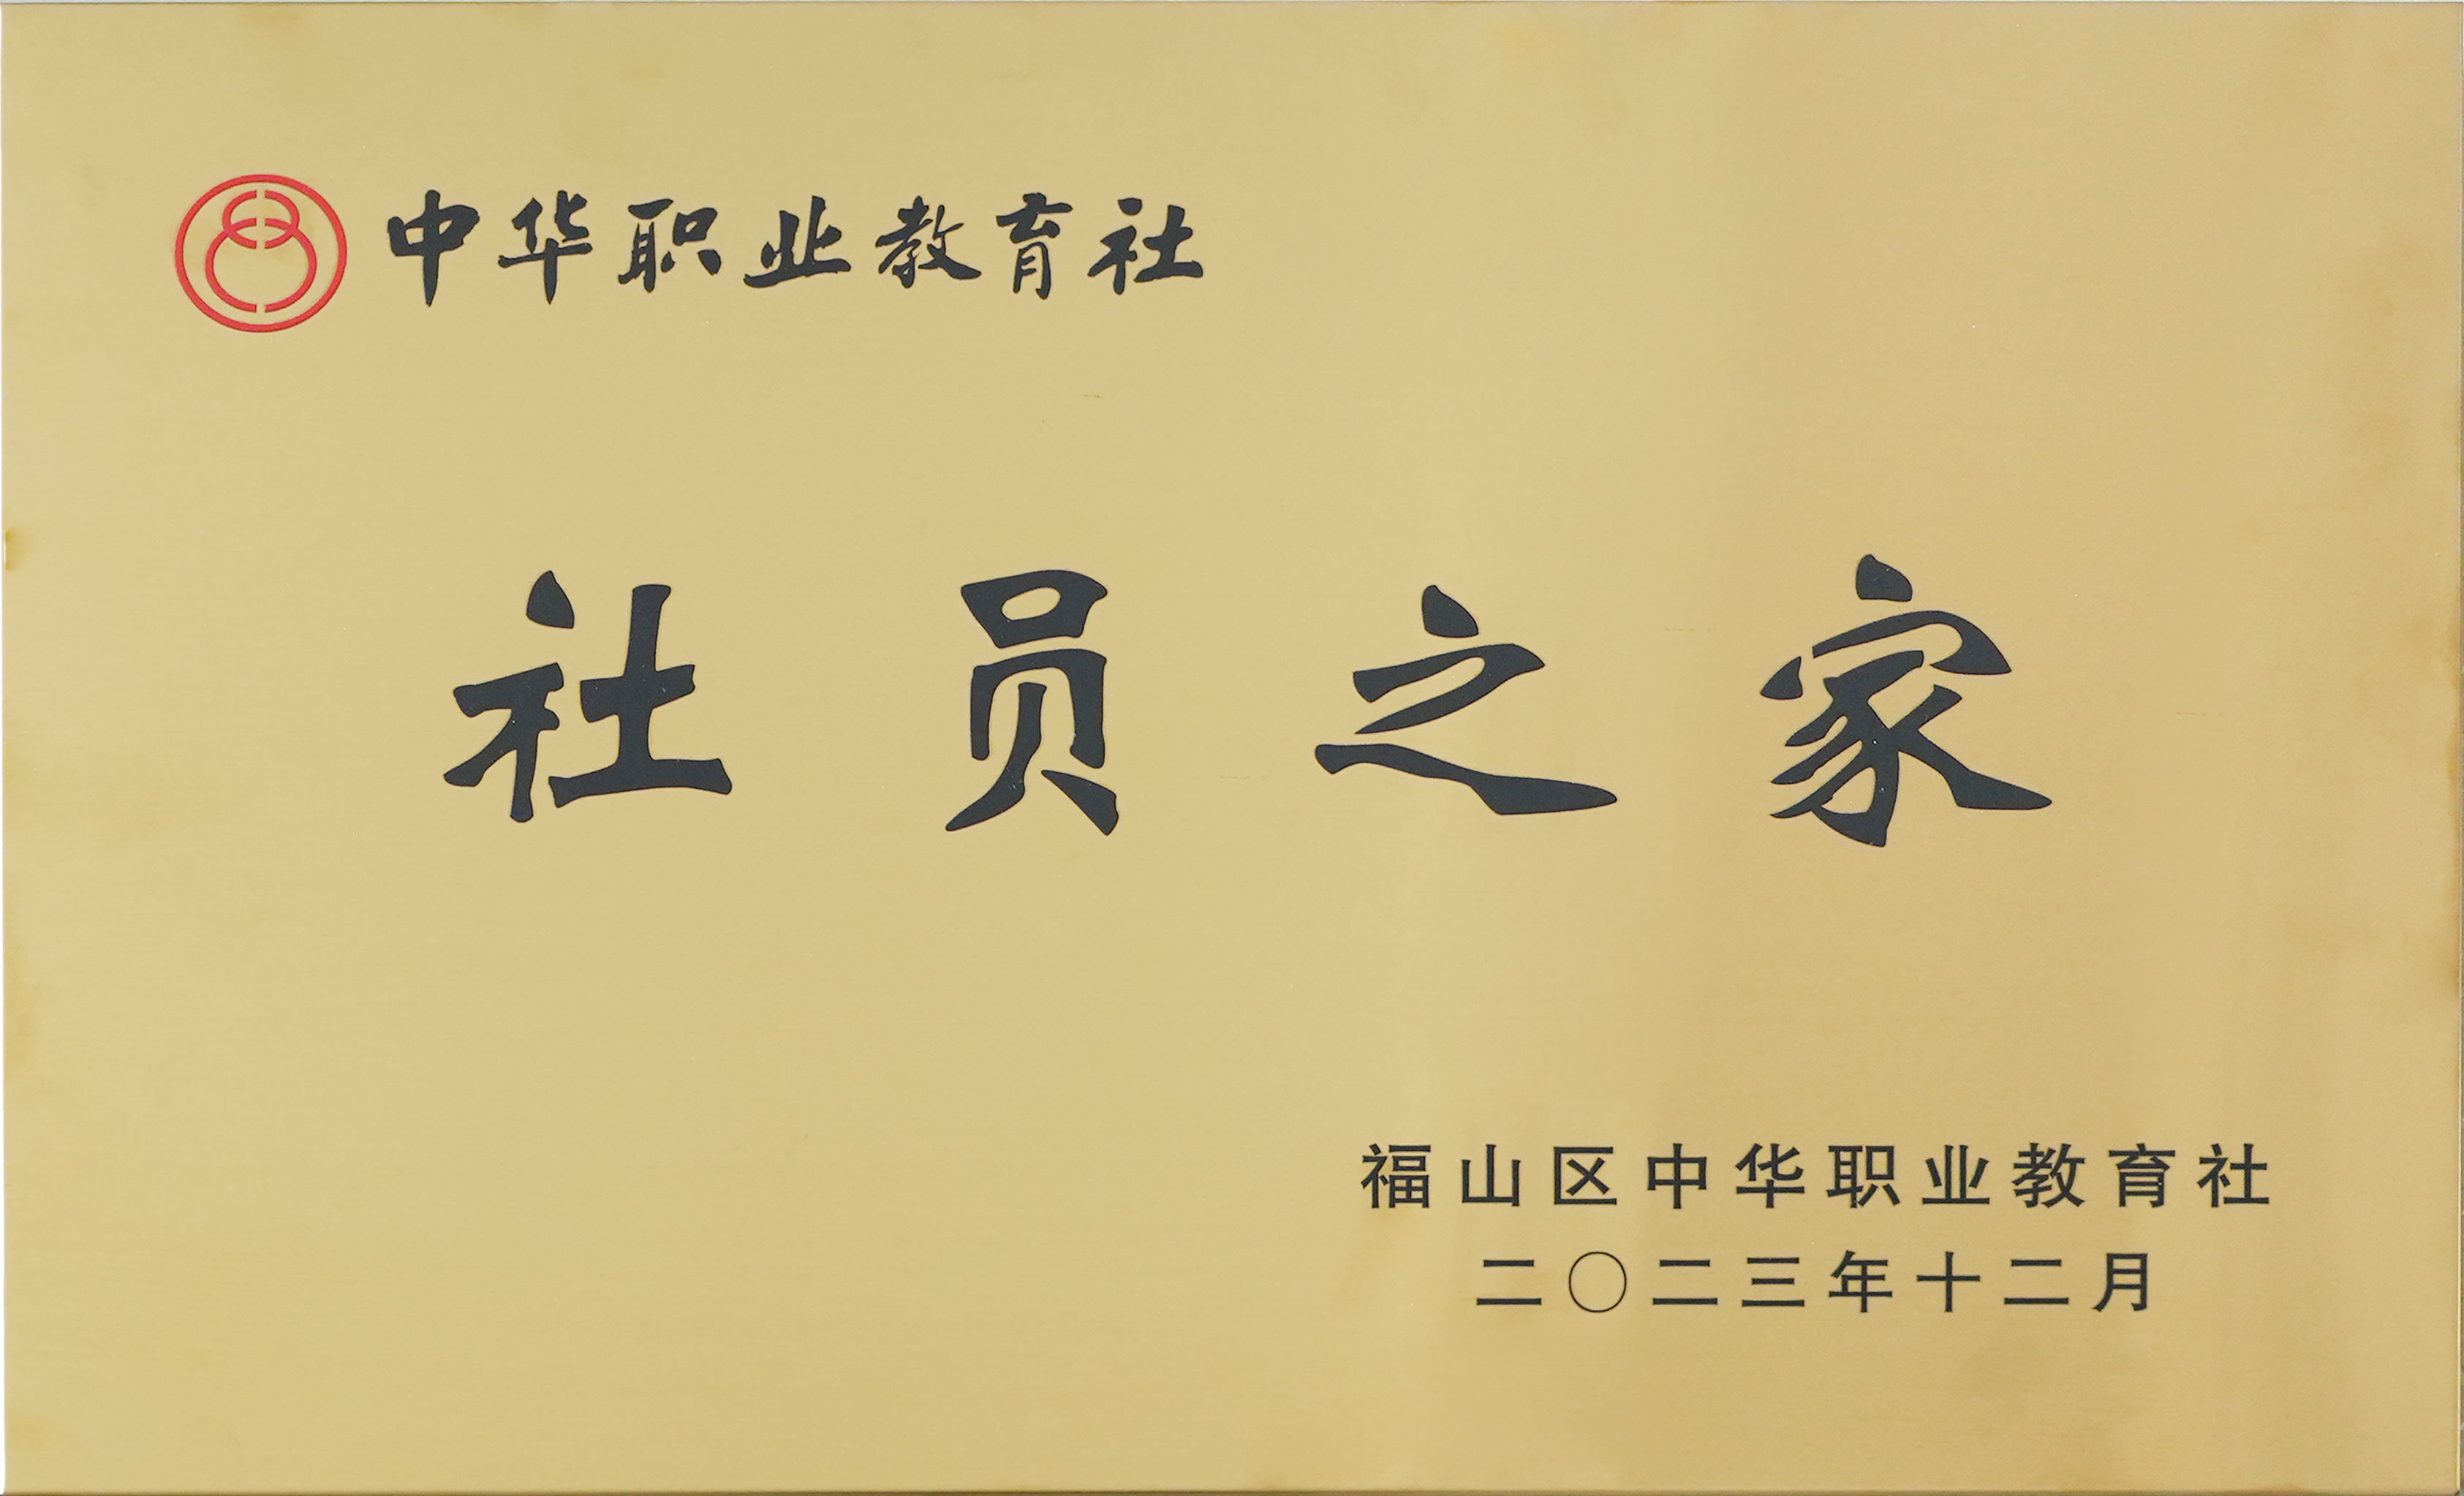 中华职业教育社
社员之家
福山区中华职业教育社
二〇二三年十二月